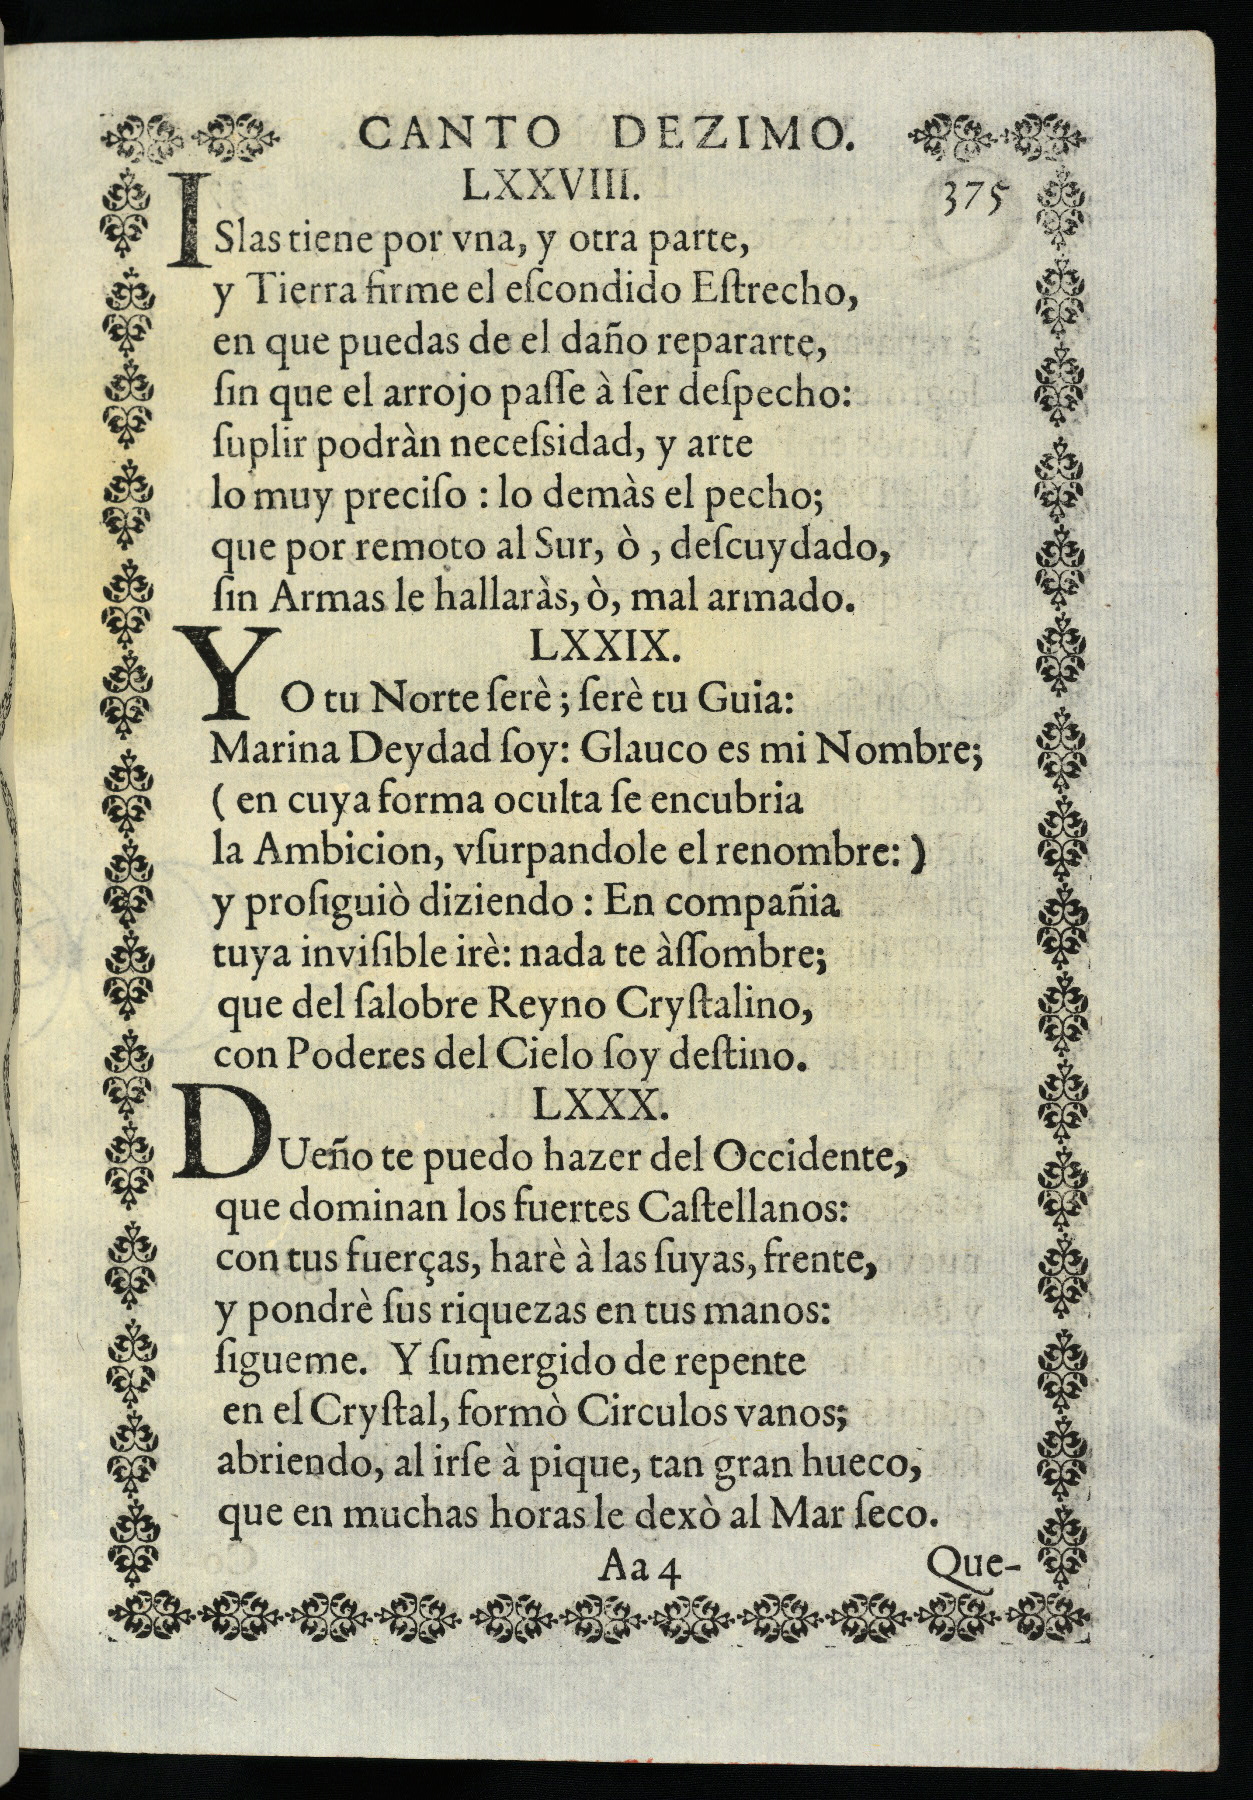 CANTO DEZIMO.
LXXVIII.
375
ISlas tiene por vna, y otra parte,
y Tierra firme el eſcondido Eſtrecho,
en que puedas de el daño repararte,
ſin que el arrojo paſſe à ſer deſpecho:
ſuplir podràn neceſsidad, y arte
lo muy preciſo : lo demàs el pecho;
que por remoto al Sur, ò , deſcuydado,
ſin Armas le hallaràs, ò, mal armado.
LXXIX.
YO tu Norte ſerè ; ſerè tu Guia:
Marina Deydad ſoy: Glauco es mi Nombre;
( en cuya forma oculta ſe encubria
la Ambicion, vſurpandole el renombre: )
y proſiguiò diziendo : En compañia
tuya inviſible irè: nada te àſſombre;
que del ſalobre Reyno Cryſtalino,
con Poderes del Cielo ſoy deſtino.
LXXX.
DUeño te puedo hazer del Occidente,
que dominan los fuertes Caſtellanos:
con tus fuerças, harè à las ſuyas, frente,
y pondrè ſus riquezas en tus manos:
ſigueme. Y ſumergido de repente
en el Cryſtal, formò Circulos vanos;
abriendo, al irſe à pique, tan gran hueco,
que en muchas horas le dexò al Mar ſeco.
Aa 4
Que-